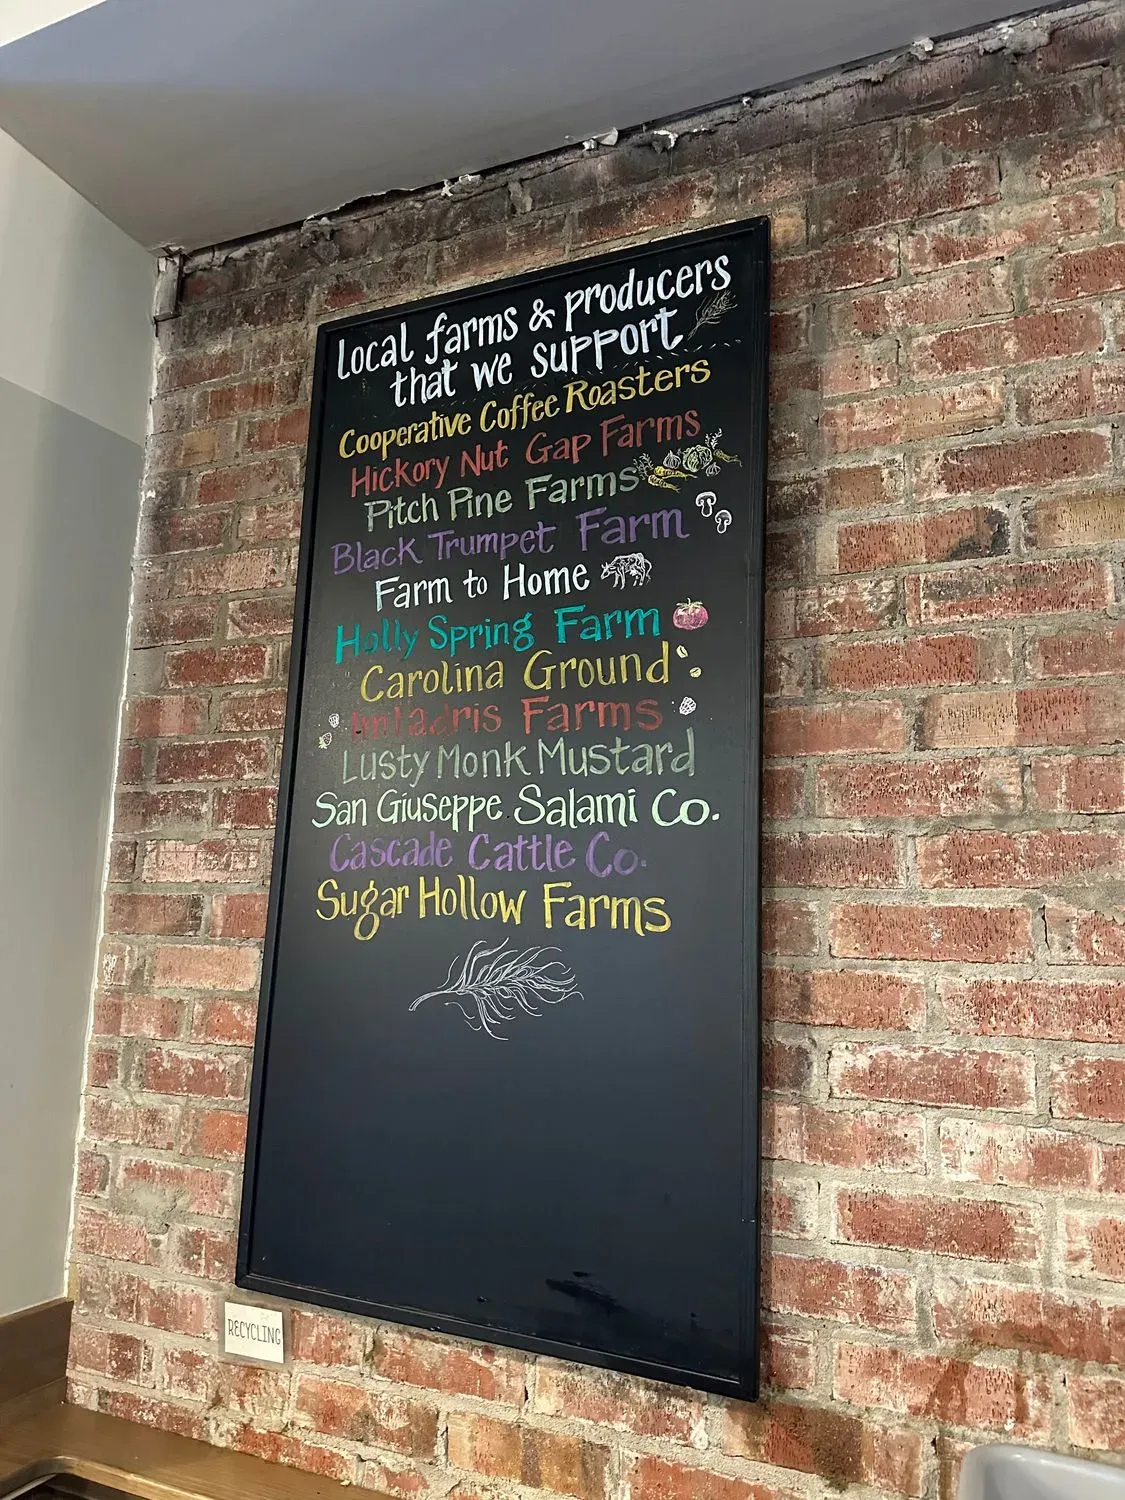 Local farms & producers
that we support
Cooperative Coffee Roasters
Hickory Nut Gap Farms
Pitch Pine Farms
Black Trumpet Farm
Farm to Home
Holly Spring Farm
Carolina Ground
Imladris Farms
Lusty Monk Mustard
San Giuseppe Salami Co.
Cascade Cattle Co.
Sugar Hollow Farms
RECYCLING